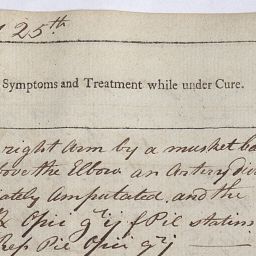 25th
Symptoms and Treatment while under Cure.
right Arm by a musket ba
bove the Elbow an Artery div
iately Amputated, and the
Opii gr ij f Pil statim
Rep Pil Opii gr ij